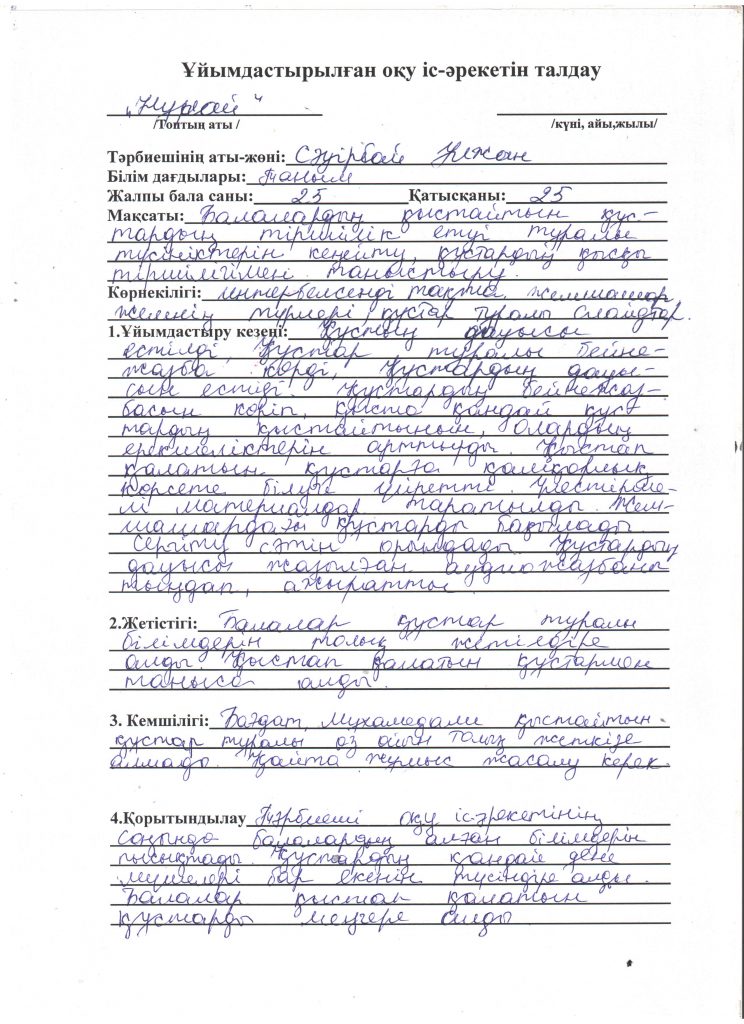 Ұйымдастырылған оқу іс-әрекетін талдау
"Нұрай"
/Топтың аты /
/күні, айы,жылы/
Тәрбиешінің аты-жөні: Сәуірбай Ұлжан
Білім дағдылары: Таным
Жалпы бала саны: 25 Қатысқаны: 25
Мақсаты: Балалардың қыстайтын құс-
тардың тіршілік етуі туралы
түсініктерін кеңейту, құстардың қысқы
тіршілігімен таныстыру.
Көрнекілігі: интербелсенді тақта, жемшашар,
жемнің түрлері, құстар туралы слайдтар.
1.Ұйымдастыру кезеңі: Құстың дауысы
естілді, Құстар туралы бейне-
жазба көрді, Құстардың дауы-
сын естіді. Құстардың бейнежаз-
басын көріп, қыста қандай құс-
тардың қыстайтынын, олардың
ерекшеліктерін арттырды. Қыстап
қалатын құстарға қамқорлық
көрсете білуге үйретті. Үлестірме-
лі материалдар таратылды. Жем-
шашардағы құстарды бақылады
Сергіту сәтін орындады. Құстардың
дауысы жазылған аудиожазбаны
тыңдап, ажыратты
2.Жетістігі: Балалар құстар туралы
білімдерін толық жетілдіре
алды. Қыстап қалатын құстармен
таныса алды.
3. Кемшілігі: Бағдат, Мухамедали қыстайтын
құстар туралы өз ойын толық жеткізе
алмады. Қайта жұмыс жасалу керек.
4.Қорытындылау Тәрбиеші оқу іс-әрекетінің
соңында балалардың алған білімдерін
пысықтады. Құстардың қандай дене
мүшелері бар екенін түсіндіре алды.
Балалар қыстап қалатын
құстарды меңгере алды